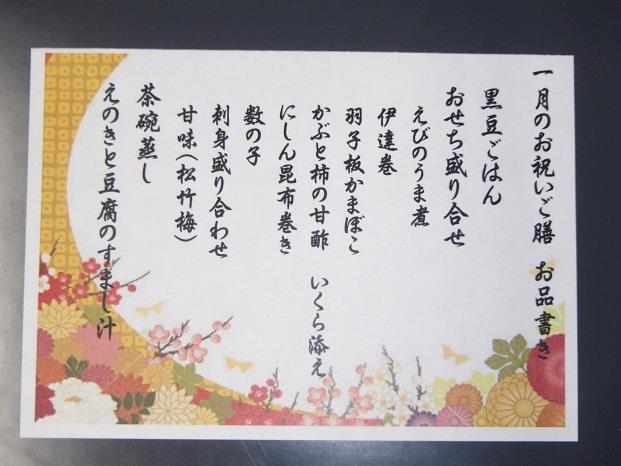 一月のお祝いご膳 お品書き
黒豆ごはん
おせち盛り合せ
えびのうま煮
伊達巻
羽子板かまぼこ
かぶと柿の甘酢 いくら添え
にしん昆布巻き
数の子
刺身盛り合わせ
甘味(松竹梅)
茶碗蒸し
えのきと豆腐のすまし汁